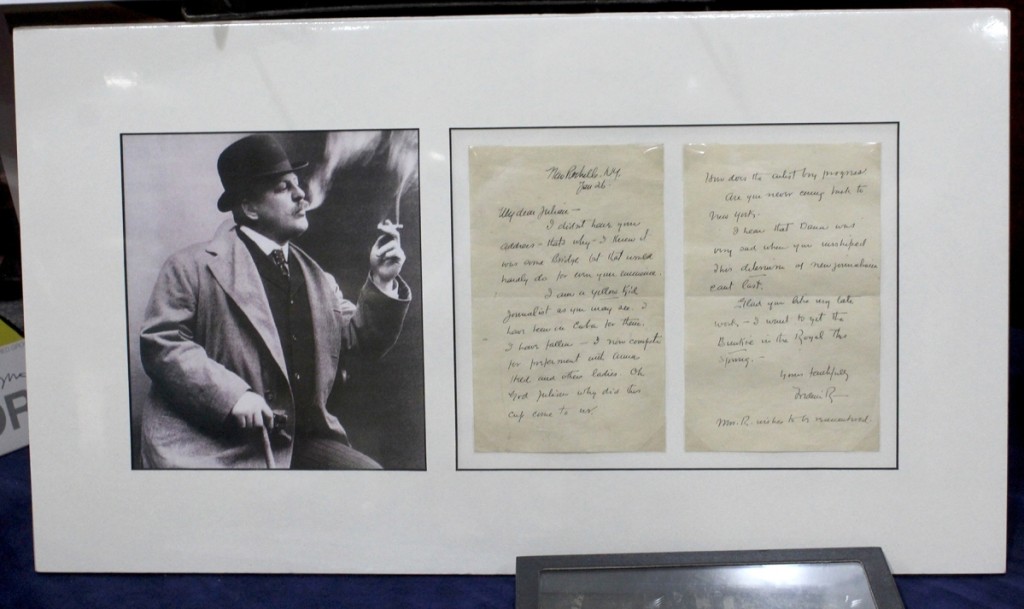 New Rochelle. N.Y.
Jan 26.
My dear Julian —
I didn't have your
address — thats why — I knew it
was some bridge but that would
hardly do for even your eminence.
I am a yellow Kid
Journalist as you may see. I
have been in Cuba for them.
I have fallen — I now compete
for preferment with Anna
Held and other ladies. Oh
God Julian why did this
cup come to us
How does the artist boy progress
Are you never coming back to
New York.
I hear that Dana was
very sad when you
This of new journalism
cant last.
Glad you like my late
work — I want to get the
in the Royal this
Spring. —
Yours faithfully
Frederic R—
Mrs. R. wishes to be remembered.